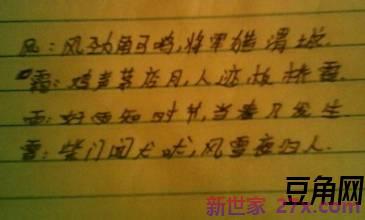 风：风劲角弓鸣,将军猎渭城.
霜：鸡声茅店月,人迹板桥霜.
雨：好雨知时节,当春乃发生
雪：柴门闻犬吠,风雪夜归人.
豆角网
新世家 27x.com